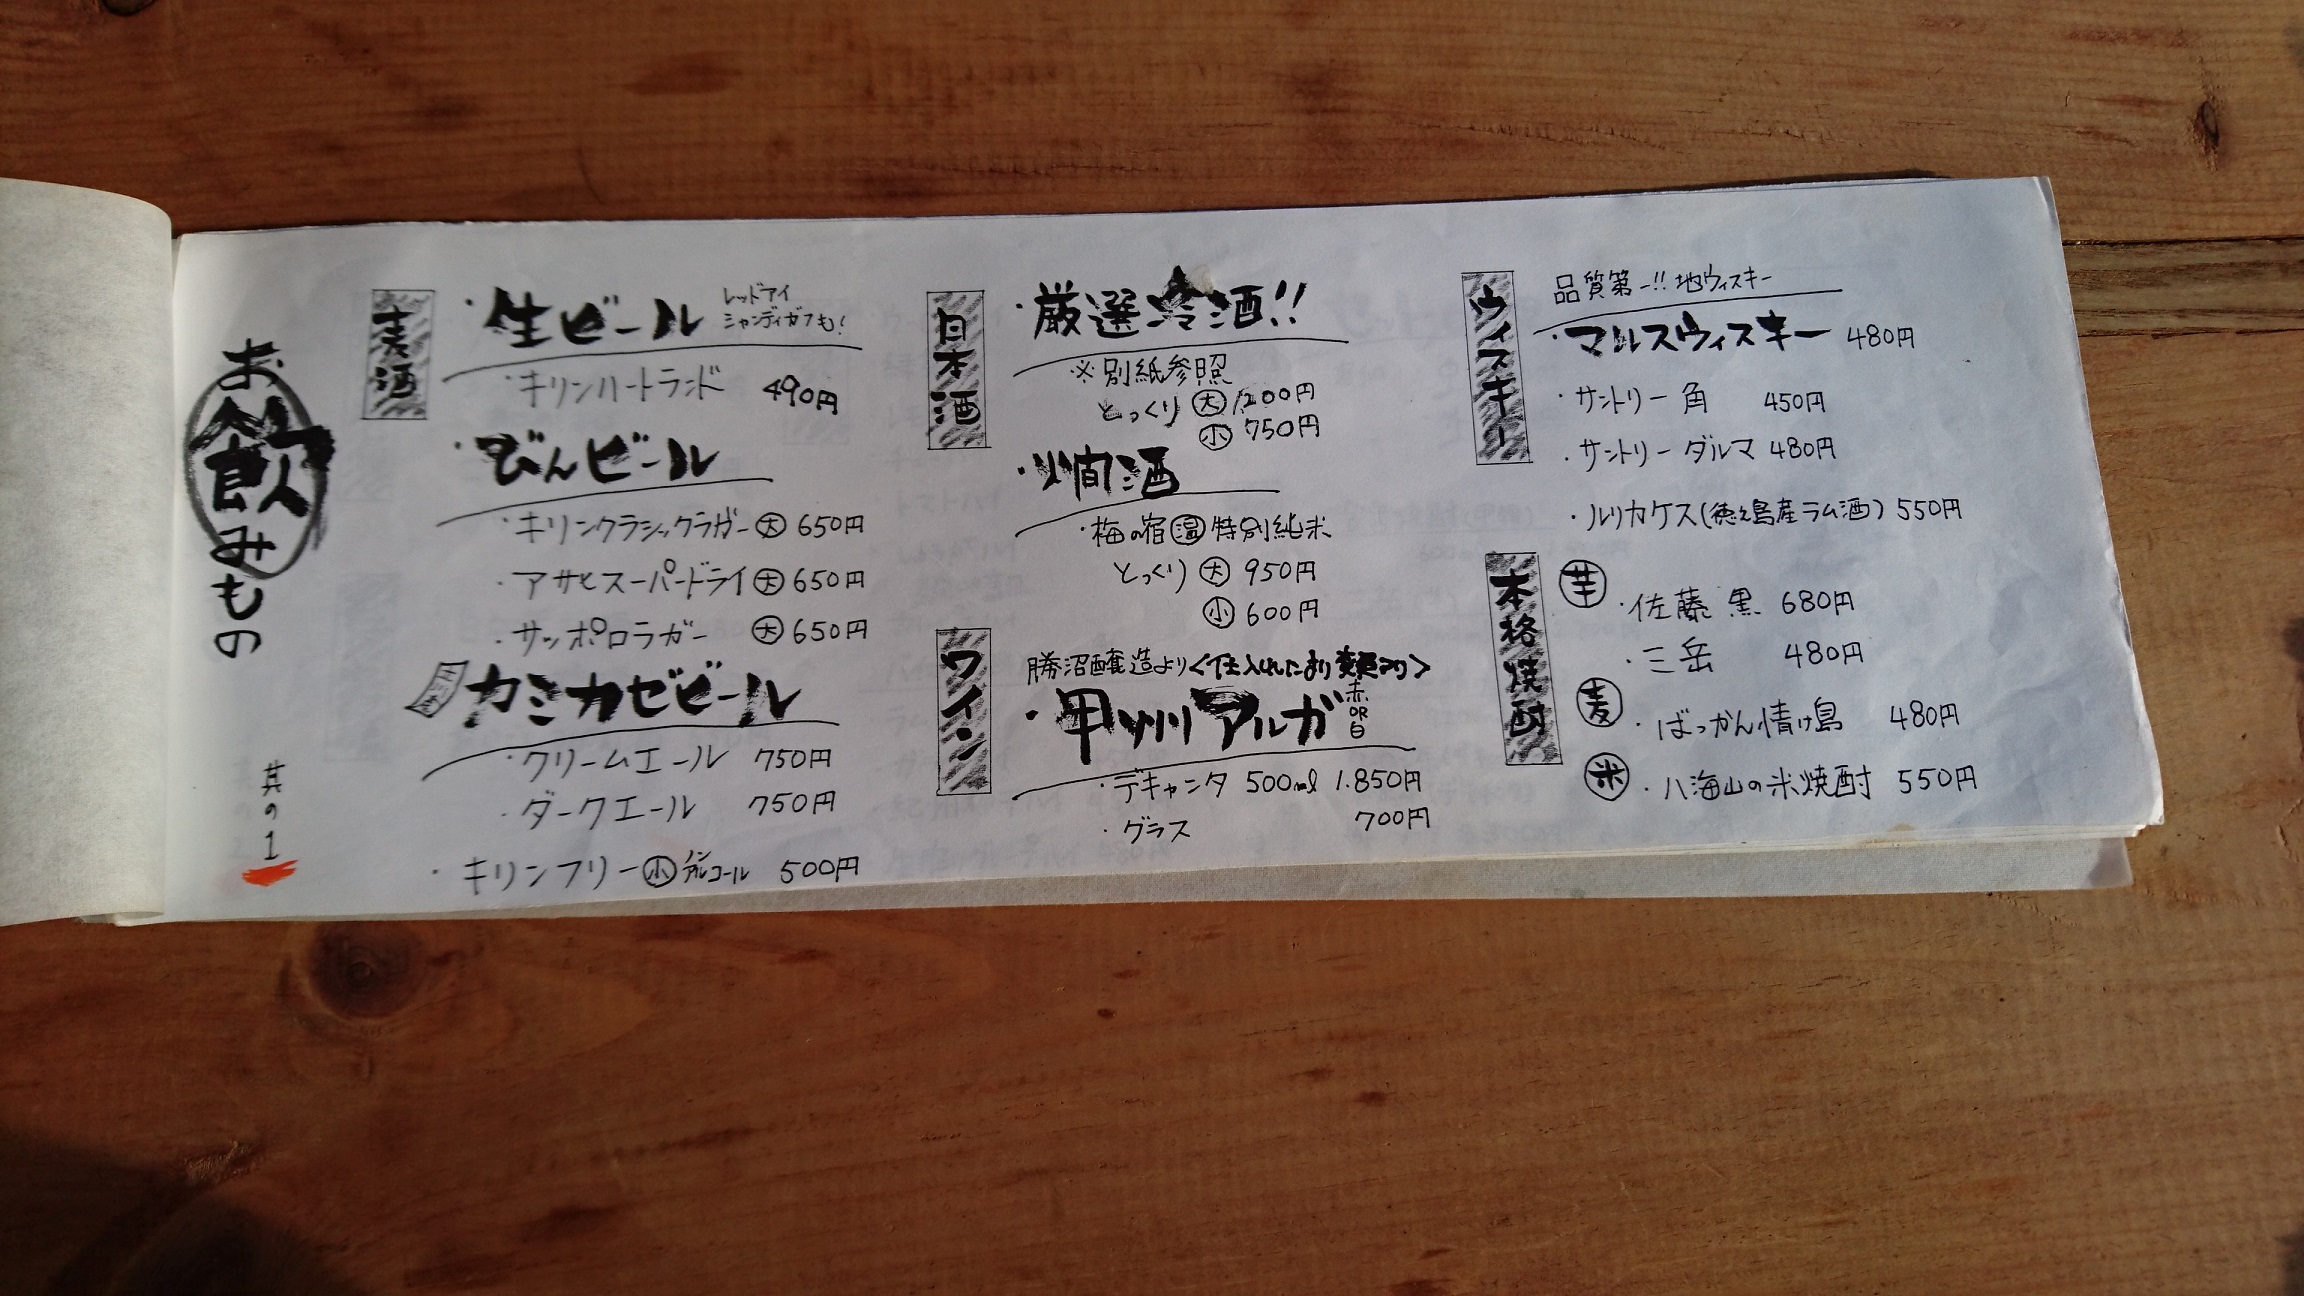 お飲みもの
其の1
麦酒
・生ビール レッドアイ
シャンディガフも!
・キリンハートランド 490円
・びんビール
・キリンクラシックラガー 大 650円
・アサヒスーパードライ 大 650円
・サッポロラガー 大 650円
カミカゼビール
・クリームエール 750円
・ダークエール 750円
・キリンフリー 小 ノンアルコール 500円
日本酒
・厳選冷酒!!
※別紙参照
とっくり 大 1200円
小 750円
・燗酒
・梅の宿 温 特別純米
とっくり 大 950円
小 600円
ワイン
勝沼醸造より<仕入れにより変更アリ>
・甲州アルガ 赤OR白
・デキャンタ 500ml 1.850円
・グラス 700円
ウィスキー
品質第一!!地ウィスキー
・マルスウィスキー 480円
・サントリー角 450円
・サントリーダルマ 480円
・ルリカケス(徳之島産ラム酒) 550円
本格焼酎
芋
・佐藤 黒 680円
・三岳 480円
麦
・ばっかん情け島 480円
米 ・八海山の米焼酎 550円